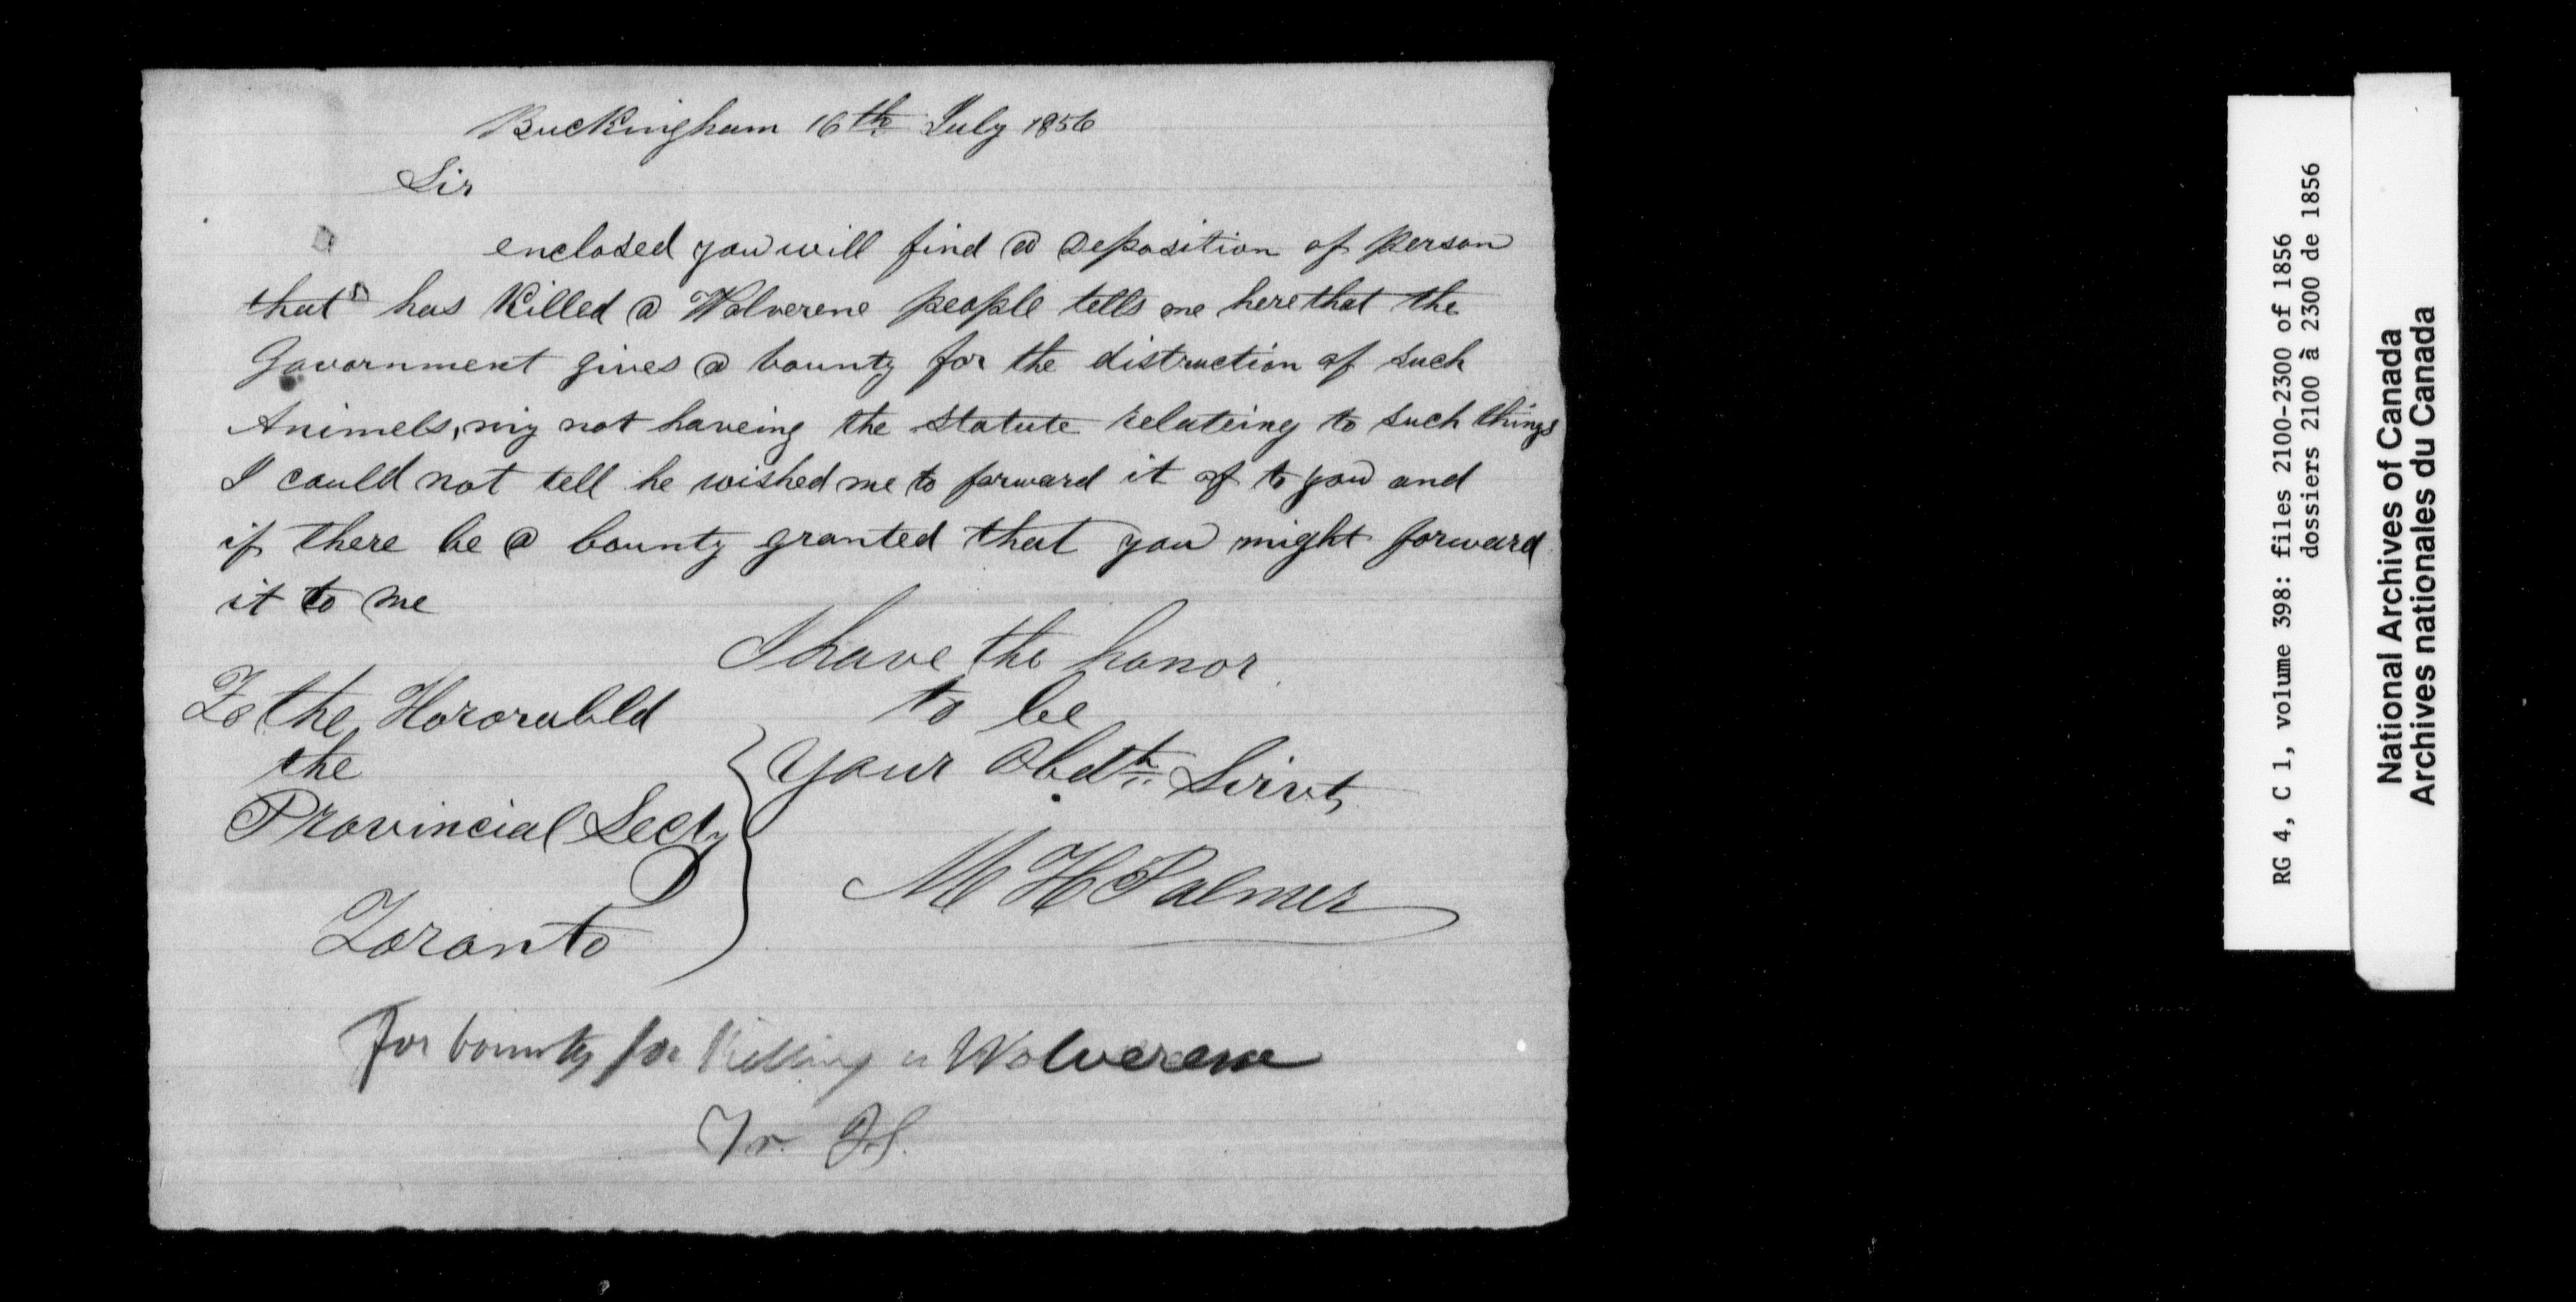 Buckingham 16th July 1856
Sir
enclosed you will find @ Deposition of Person
that has Killed @ Wolverene people tells me here that the
Govornment gives @ bounty for the distruction of such
Animels, my not haveing the Statute relateing to such things
I could not tell he wished me to forward it of to you and
if there be @ bounty granted that you might forward
it to me
I have the honor
to be
Your Obdt Sirvt,
M H Palmer
To the Hororabld
the
Provincial Secty
Toronto
for bounty for Killing a Wolverene
RG 4, C 1, volume 398: files 2100-2300 of 1856
dossiers 2100 à 2300 de 1856
National Archives of Canada
Archives nationales du Canada